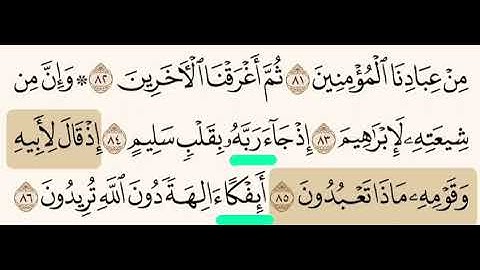 مِنْ عِبَادِنَا ٱلْمُؤْمِنِينَ ٨١ ثُمَّ أَغْرَقْنَا ٱلْأَخَرِينَ ٨٢ ۞ وَإِنَّ مِن
شِيعَتِهِۦ لَإِبْرَٰهِيمَ ٨٣ إِذْ جَآءَ رَبَّهُۥ بِقَلْبٍ سَلِيمٍ ٨٤ إِذْ قَالَ لِأَبِيهِ
وَقَوْمِهِۦ مَاذَا تَعْبُدُونَ ٨٥ أَئِفْكًا ءَالِهَةً دُونَ ٱللَّهِ تُرِيدُونَ ٨٦